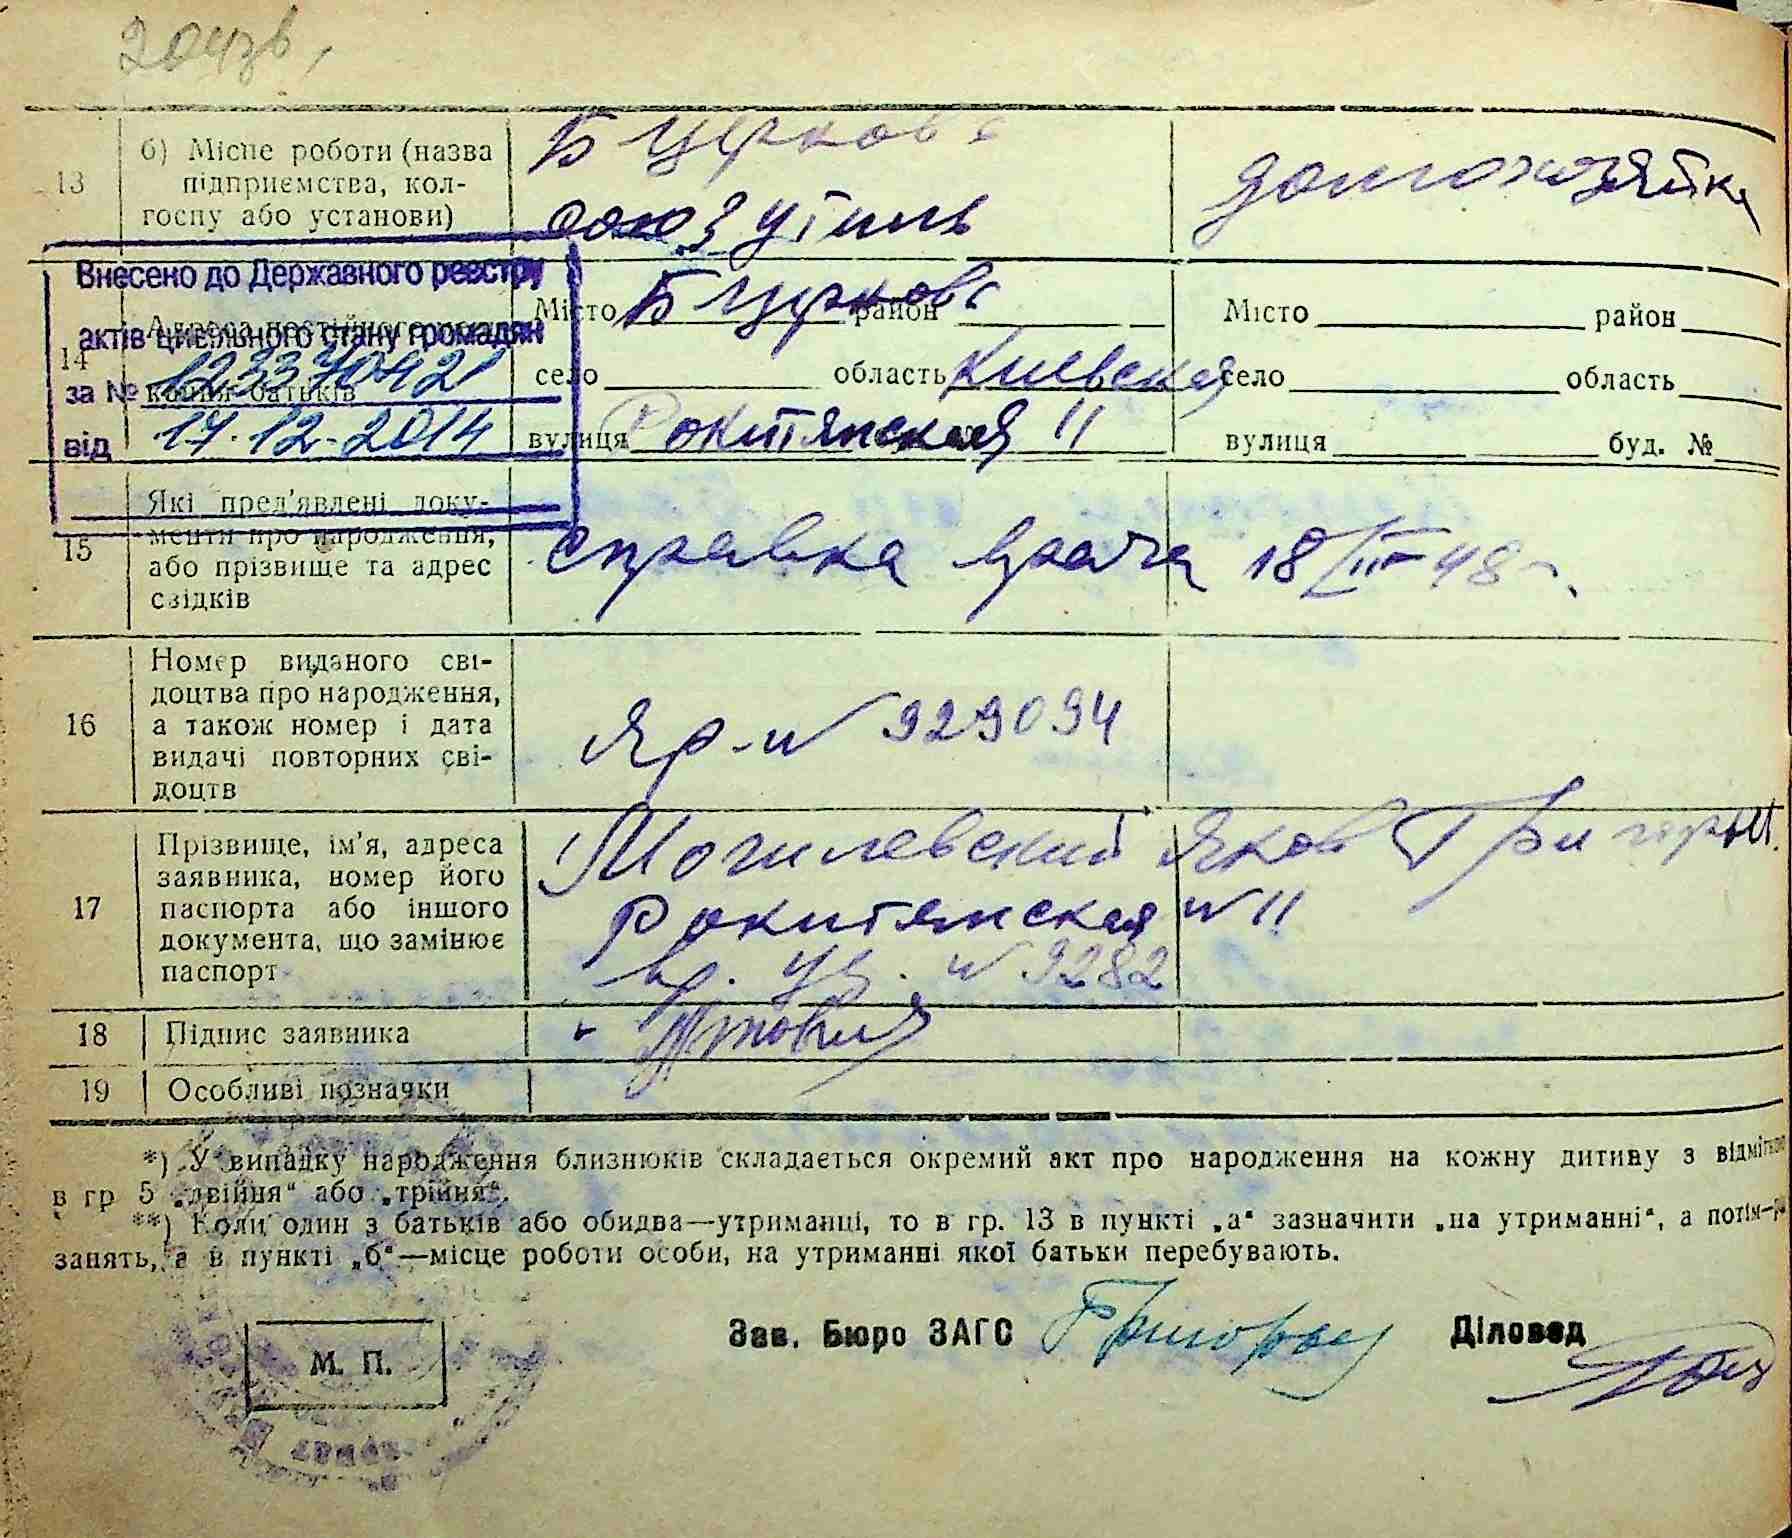 13
б) Місце роботи (назва
підприємства, кол-
госпу або установи)
Б Церковь
союз утиль
домохозяйка
Внесено до Державного реєстру
актів цивільного стану громадян
за № 123370421
від 17.12.2014
14
Адреса постійного
батьків
Місто Б Церковь район
село область Киевская
вулиця Рокитянская 11
Місто район
село область
вулиця буд. №
15
Які пред'явлені доку-
менти про народження,
або прізвище та адрес
свідків
справка врача 18/III-48 г.
16
Номер виданого сві-
доцтва про народження,
а також номер і дата
видачі повторних сві-
доцтв
N 929094
17
Прізвище, ім'я, адреса
заявника, номер його
паспорта або іншого
документа, що замінює
паспорт
Могилевский Яков Григорьев.
Рокитянская N 11
вр. уд. N 9282
18
Підпис заявника
19
Особливі позначки
*) У випадку народження близнюків складається окремий акт про народження на кожну дитину з відміткою
в гр 5 „двійня“ або „трійня“.
**) Коли один з батьків або обидва—утриманці, то в гр. 13 в пункті „а“ зазначити „на утриманні“, а потім—
занять, а в пункті „б“—місце роботи особи, на утриманні якої батьки перебувають.
Зав. Бюро ЗАГС
Діловод
М. П.